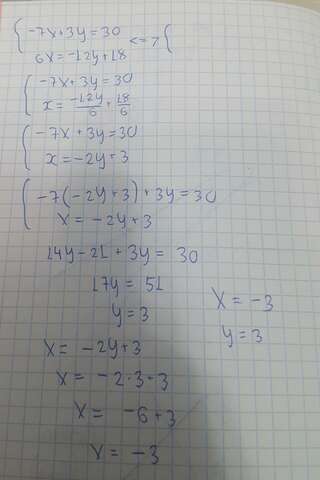 { -7x+3y=30 <=> {
6x=-12y+18
{ -7x+3y=30
x= -12y/6 + 18/6
{ -7x+3y=30
x=-2y+3
{ -7(-2y+3)+3y=30
x=-2y+3
14y-21+3y=30
17y=51
y=3
x=-2y+3
x=-2·3+3
x=-6+3
x=-3
x=-3
y=3